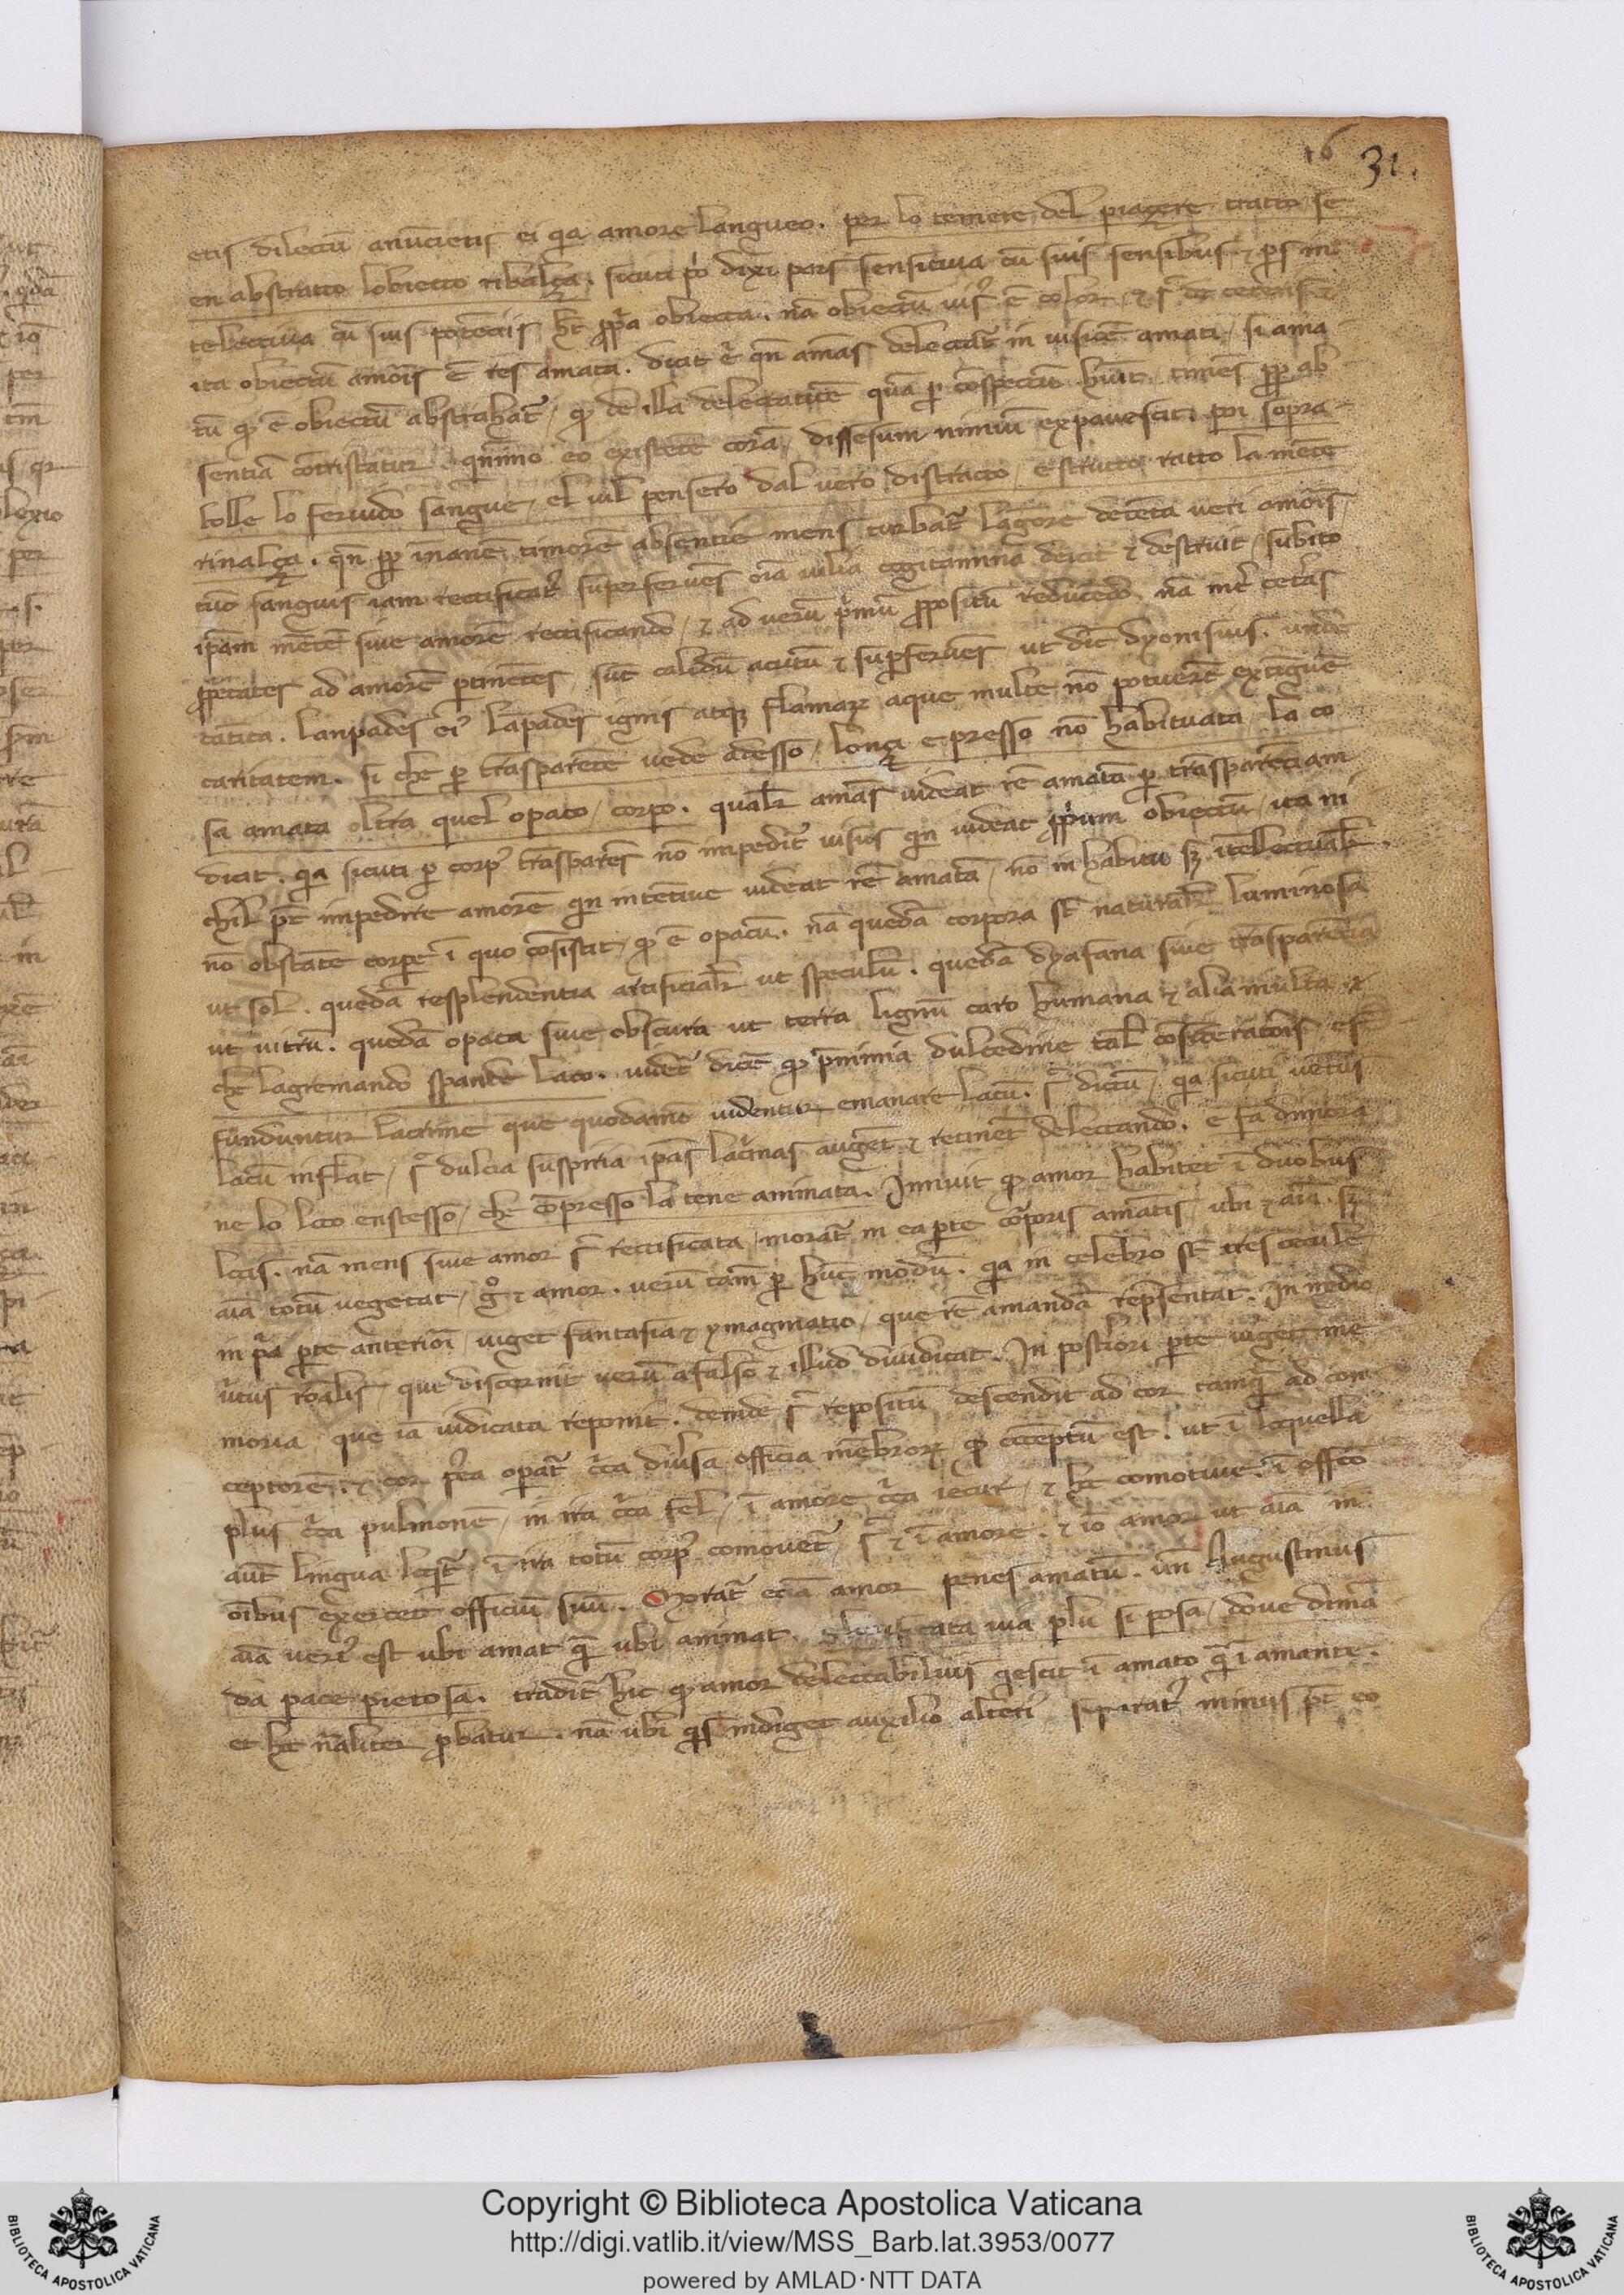 16 31.
etis dilectū anūcietis ei qia amore langueo. per lo temere del piaҫere tratto se
en abstratto lobietto ribalҫa. sicuti p̉o dixi pars sensitiua cū suis sensibus ⁊ p̱s in
telectiua cū suis potēciis hn̄t ꝓp̉a obiecta. nā obiectū uisꝰ ē color, ⁊ s̉ de ceteris ⁊
ita obiectū amoris ē res amata. dicit qn̄ amās delectat̉ in uisiōe amati, si ama
tū qđ ē obiectū abstrahat̉, qđ de illa delectatiōe quā ꝑ cōspectū huīt, timēs ꝓp̱ ab
sentiā cōtristatur. qn̄īmo eo existēte corā, dissesum nimiū expauescit. poi sopra
bolle lo feruido sangue, el uil pensero dal uero distracto, e strutto ratto la mēte
rinalҫa. qn̄ ꝓp̱ inanē timorē absentie mens turbat̉ lāgore detēta ueri amoris,
tūc sanguis iam rectificatꝰ superferuēs oīa uilia cogitamina deicit ⁊ destruit, subito
ip̄am mētē siue amorē rectificando, ⁊ ad uerū p̉mū ꝓpositū reducēdo. nā int̉ cet̉as
ꝓp̉etates ad amorē ꝑtinētes, sūt calidū acutū ⁊ suꝑferuēs ut dic̄ dyonisius. unde
cātica. lanpades eiꝰ lāpades ignis atqꝫ flamaꝝ aque multe nō potuerūt extīguē
caritatem. si che ꝑ trāsparēte uede adesso, lonҫi e presso nō habituata, la co
sa amata oltra quel opaco, corpo. qualit̉ amās uideat rē amatā ꝑ trāsparēciam
dicit. qia sicuti ꝑ corpꝰ trāsparēs nō impedit̉ uisus qin uideat ꝓprium obiectū, ita ni
chil pōt impedire amorē qin intētiue uideat rē amatā, nō in habitu sꝫ ītellectualit̉.
nō obstāte corꝑe ī quo cōsistit, qđ ē opacū. nā quedā corpora st̄ naturalit̉ luminosa
ut sol. quedā resplendentia artificialit̉ ut speculū. quedā dyafana siue trāsparēcia
ut uitrū. quedā opaca siue obscura ut terra lignū caro humana ⁊ alia multa.
che lagremando spande laco. uidet̉ dicē qđ p̄nimia dulcedine tal̉ cōsideratiōis, ef
funduntur lacrime que quodamō uidentur emanare lacū. s̉ dictū, qia sicuti uentus
lacū inflat, s̉ dulcia suspiria ip̄as lac̉mas augēt ⁊ retinēt delectando. e fa dimora
ne lo loco enstesso, che cōpresso la tene animata. Innuit qđ amor habitet ī duobus
locis. nā mens siue amor s̉ rectificata, morat̉ in ea ꝑte corꝑoris amātis, ubi ⁊ aīa. sꝫ
aīa totū uegetat, gͦ ⁊ amor. uerū tam̄ ꝑ hūc modū. qia in celebro st̄ tres cellule
in p̉a ꝑte anteriori, uiget fantasia ⁊ ymaginatio, que rē amandā rep̄sentat. In medio
u̓tus rōalis, que discernit uerū a falso ⁊ illud diiudicat. In post̉iori ꝑte uiget me
moria que iā iudicata reponit. deinde s̉ repositū descendit ad cor tamq̄ ad con
ceptorē. ⁊ cor operat̉ c̉ca diuersa officia mēbroꝝ qđ cōceptū est. ut ī loquella
plus c̉ca pulmonē, in ira c̉ca fel, ī amore c̉ca iecur, ⁊ hec comotiue. ī effectu
aūt lingua loqit̉, ī ira totū corpꝰ comouet̉, s̉ ⁊ ī amore. ⁊ iō amor ut aīa in
oībus exercet officiū suū. Morat̉ eciā amor penes amatū. un̄ Augustinus
aīa ueriꝰ est ubi amat q̄ ubi animat. cata uia plu si posa, doue dimā
da pace pietosa. tradit̉ hic qđ amor delectabilius qescit ī amato q̄ ī amante.
et hec nāliter ꝓbatur. nā ubi qis indiget auxilio alteriꝰ separatꝰ minus pōt eo
Copyright © Biblioteca Apostolica Vaticana
http://digi.vatlib.it/view/MSS_Barb.lat.3953/0077
powered by AMLAD·NTT DATA
BIBLIOTECA APOSTOLICA VATICANA
BIBLIOTECA APOSTOLICA VATICANA